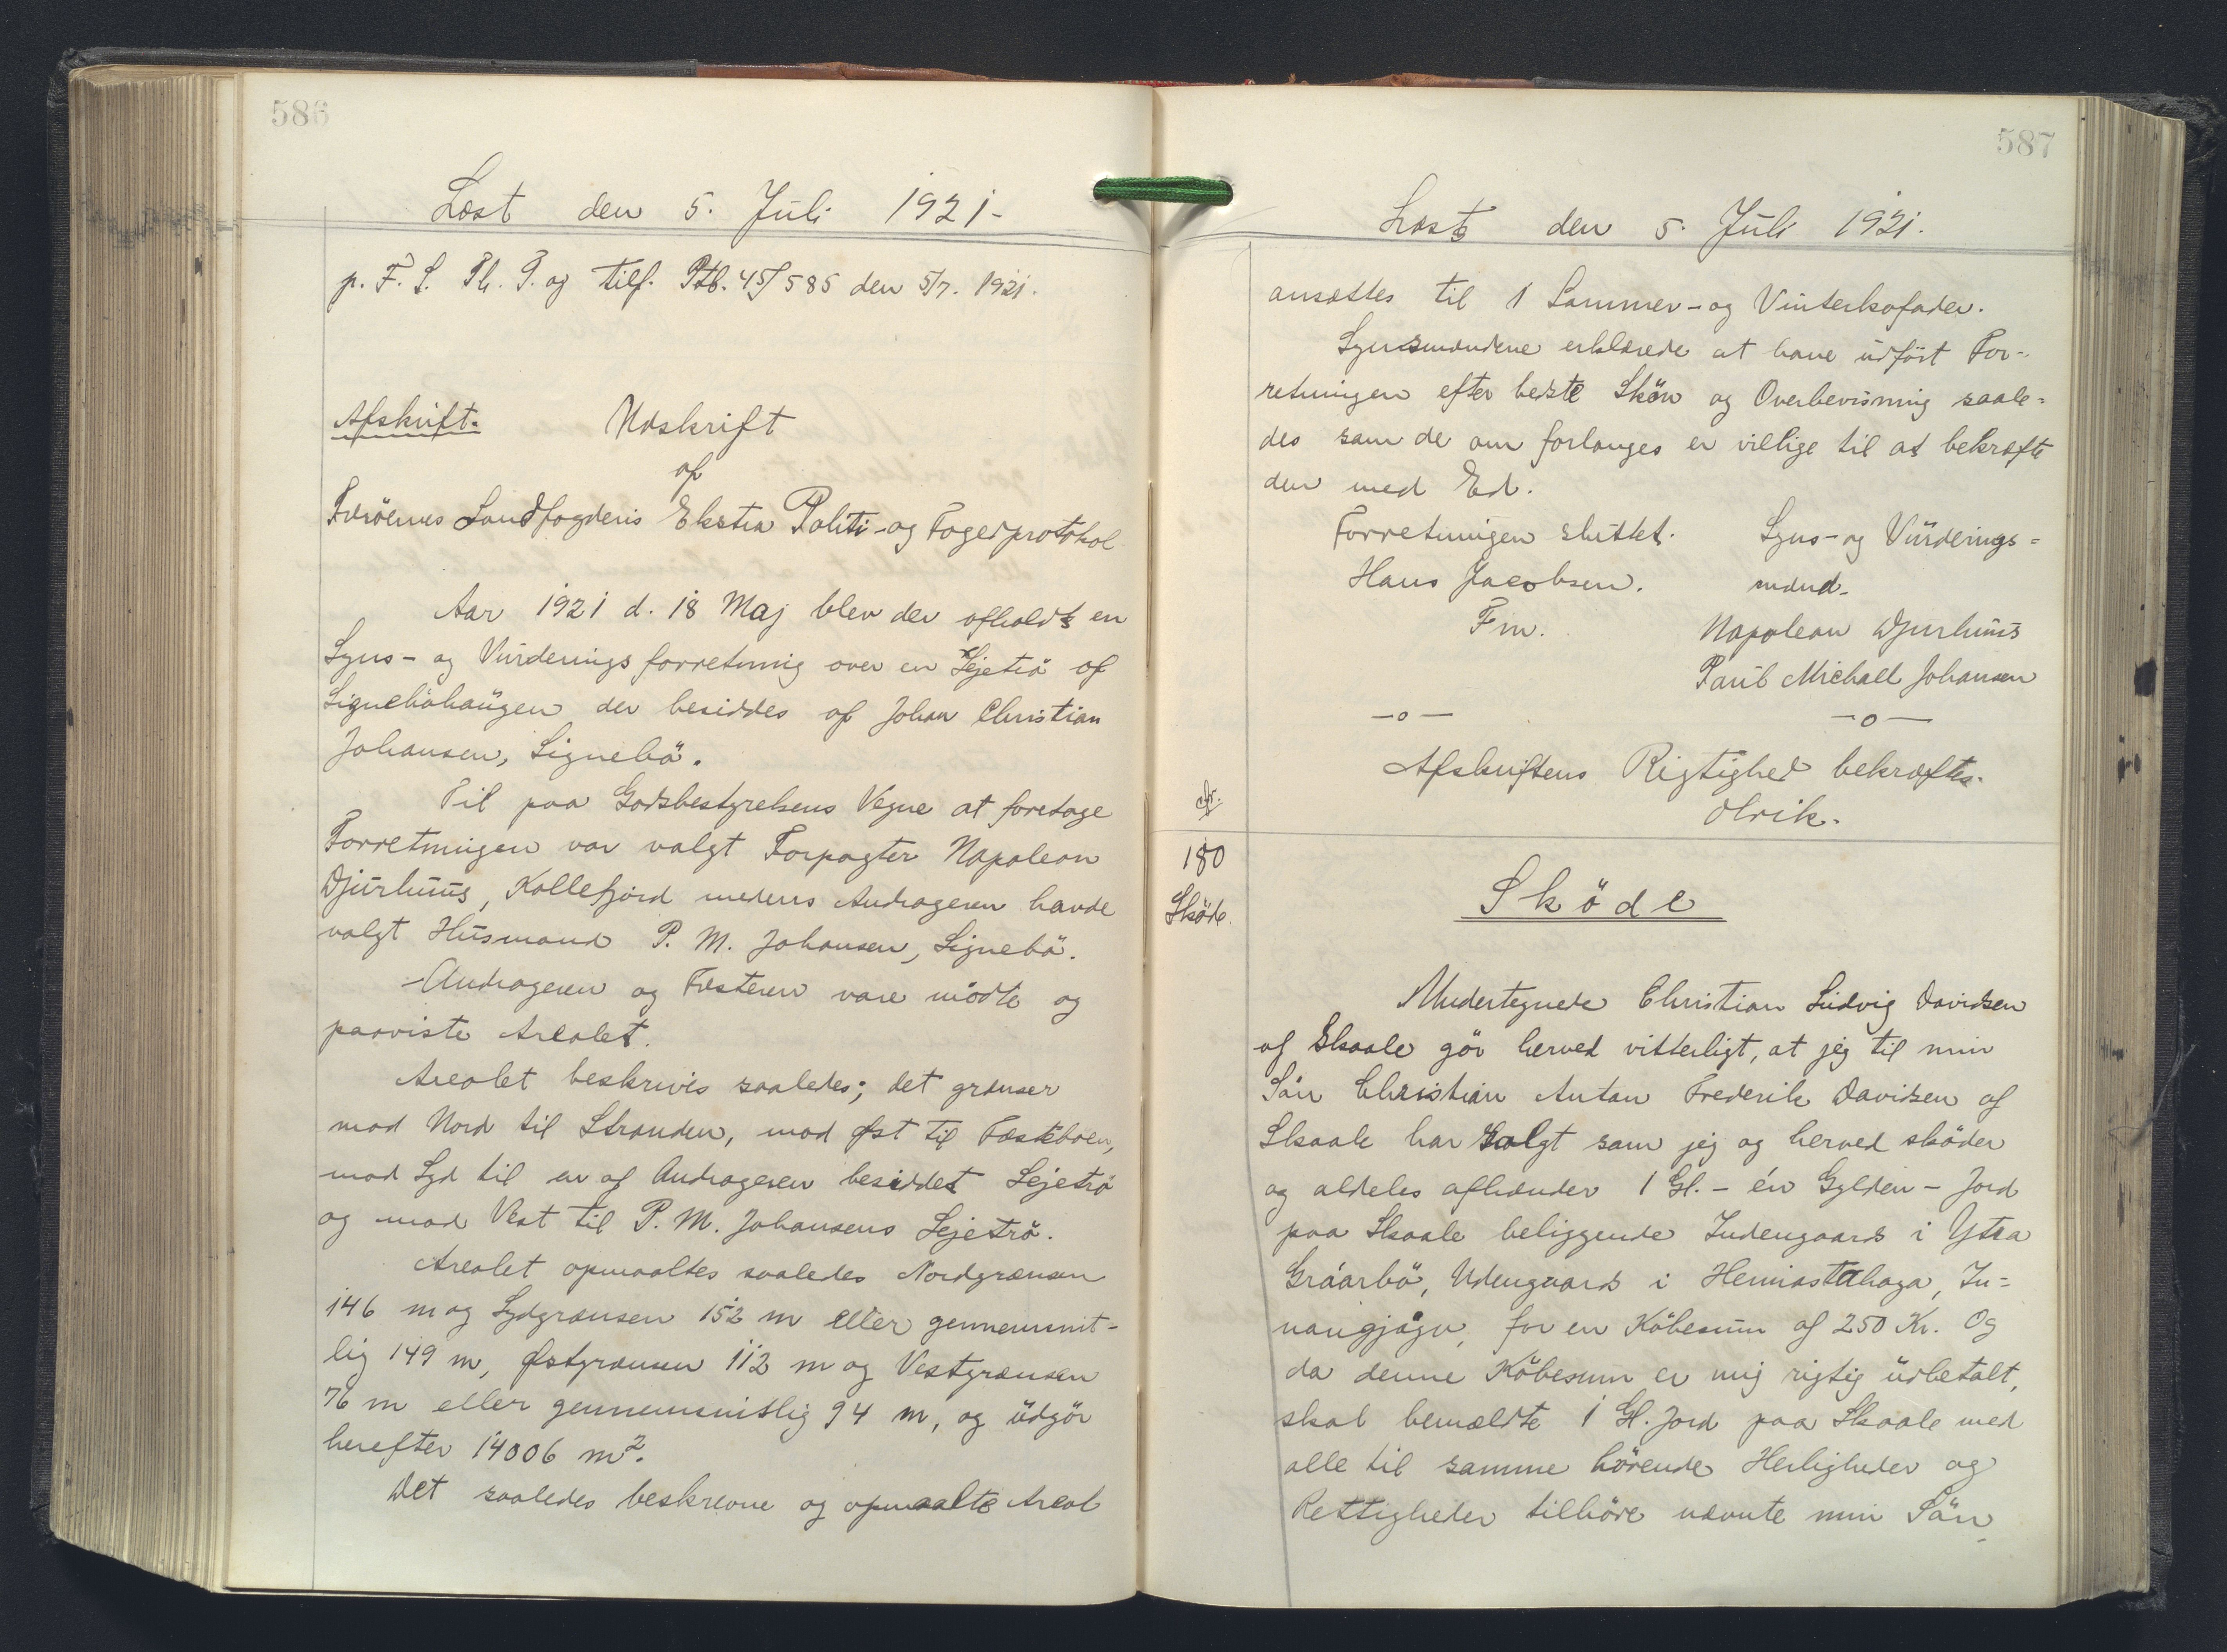 586
Læst den 5. Juli 1921-
p. F. S. Th. P. og tilf. Ptb. 45/585 den 5/7. 1921.
Afskrift. Udskrift
af
Færöernes Landfogderis Ekstra Politi- og Fogedprotokol
Aar 1921 d. 18 Maj blev der afholdt en
Syns- og Vurderingsforretning over en Lejetrö af
Signeböhaugen der besiddes af Johan Christian
Johansen, Signebö.
Til paa Godsbestyrelsens Vegne at foretage
Forretningen var valgt Forpagter Napoleon
Djurhuus, Kollefjord medens Andrageren havde
valgt Husmand P. M. Johansen, Signebö.
Andrageren og Fæsteren vare mödte og
paaviste Arealet.
Arealet beskrives saaledes; det grænser
mod Nord til Stranden, mod Øst til Fæsteboen,
mod Syd til en af Andrageren besiddet Lejetrö
og mod Vest til P. M. Johansens Lejetrö.
Arealet opmaaltes saaledes Nordgrænsen
146 m og Sydgrænsen 152 m eller gennemsnit-
lig 149 m, Østgrænsen 112 m og Vestgrænsen
76 m eller gennemsnitlig 94 m, og udgör
herefter 14006 m².
Det saaledes beskrevne og opmaalte Areal
587
Læst den 5. Juli 1921.
ansættes til 1 Sommer- og Vinterkofoder.
Synsmændene erklærede at have udført For-
retningen efter bedste Skön og Overbevisning saale=
des som de om forlanges er villige til at bekræfte
den med Ed.
Forretningen sluttet. Syns- og Vurderings=
Hans Jacobsen. mænd.
Fm. Napoleon Djurhuus
Paul Michael Johansen
—o— —o—
Afskriftens Rigtighed bekræftes.
Olrik.
180
Sköde.
Sköde
Undertegnede Christian Ludvig Davidsen
af Skaale gör herved vitterligt, at jeg til min
Sön Christian Anton Frederik Davidsen af
Skaale har solgt som jeg og herved sköder
og aldeles afhænder 1 Gl. - én Gylden - Jord
paa Skaale beliggende Indengaards i Ytra
Gráarbö, Udengaards i Hemiastahaga, In=
nangjógv, for en Köbesum af 250 Kr. Og
da denne Köbesum er mig rigtig udbetalt,
skal bemældte 1 Gl. Jord paa Skaale med
alle til samme hörende Herligheder og
Rettigheder tilhöre nævnte min Sön